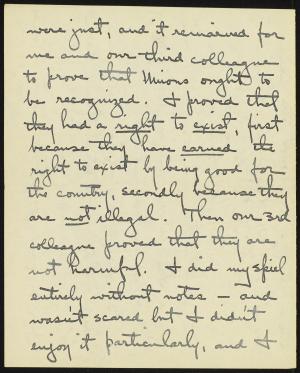 were just, and it remained for
me and our third colleague
to prove that Unions ought to
be recognized. I proved that
they had a right to exist, first
because they have earned the
right to exist by being good for
the country, secondly because they
are not illegal. Then our 3rd
colleague proved that they are
not harmful. I did my spiel
entirely without notes — and
wasn't scared but I didn't
enjoy it particularly, and I